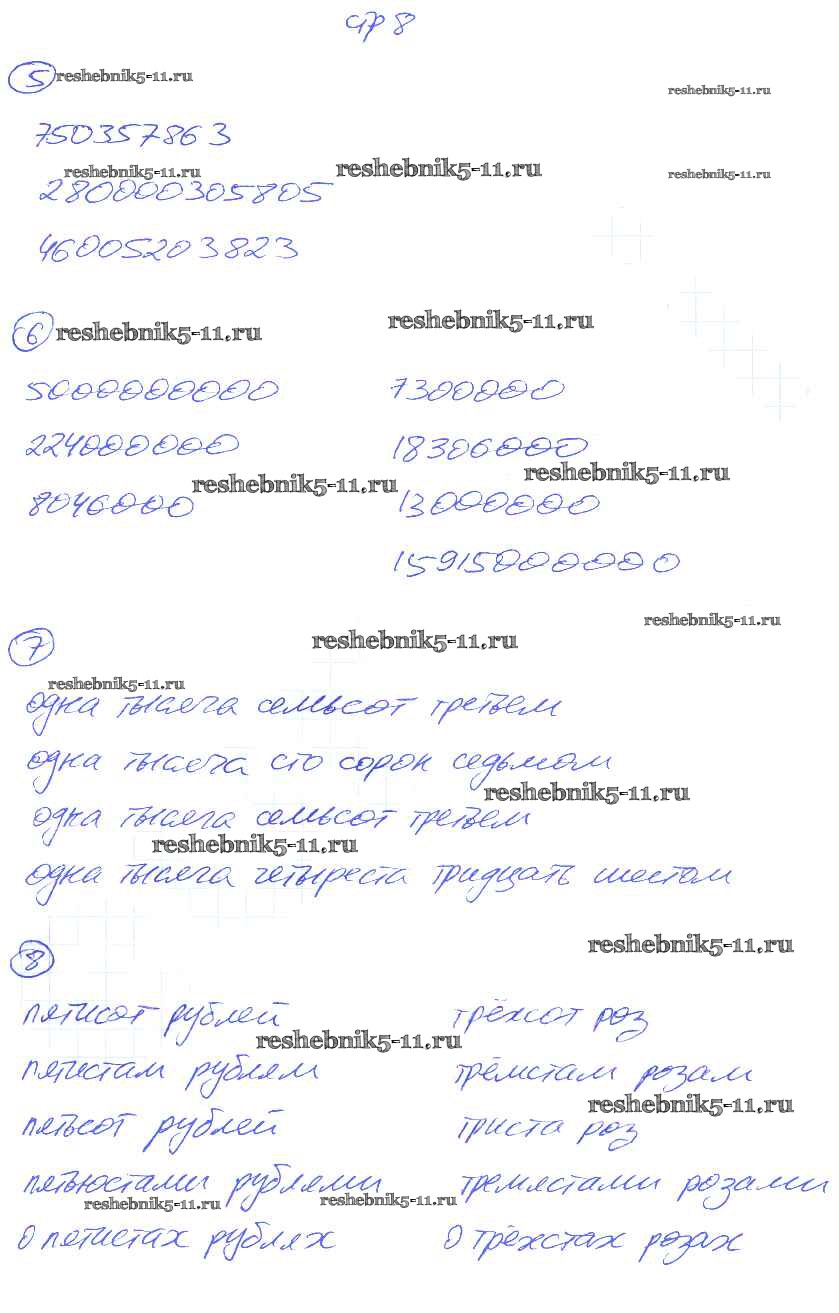 стр 8
5 reshebnik5-11.ru
reshebnik5-11.ru
750357863
reshebnik5-11.ru reshebnik5-11.ru reshebnik5-11.ru
2800000305805
46005203823
6 reshebnik5-11.ru reshebnik5-11.ru
5000000000 7300000
224000000 18306000
reshebnik5-11.ru reshebnik5-11.ru
8046000 13000000
15915000000
reshebnik5-11.ru
7 reshebnik5-11.ru
reshebnik5-11.ru
одна тысяча семьсот третьем
одна тысяча сто сорок седьмом
reshebnik5-11.ru
одна тысяча семьсот третьем
reshebnik5-11.ru
одна тысяча четыреста тридцать шестом
8 reshebnik5-11.ru
пятисот рублей трёхсот роз
reshebnik5-11.ru
пятистам рублям трёмстам розам
reshebnik5-11.ru
пятьсот рублей триста роз
пятьюстами рублями тремястами розами
reshebnik5-11.ru reshebnik5-11.ru
О пятистах рублях О трёхстах розах